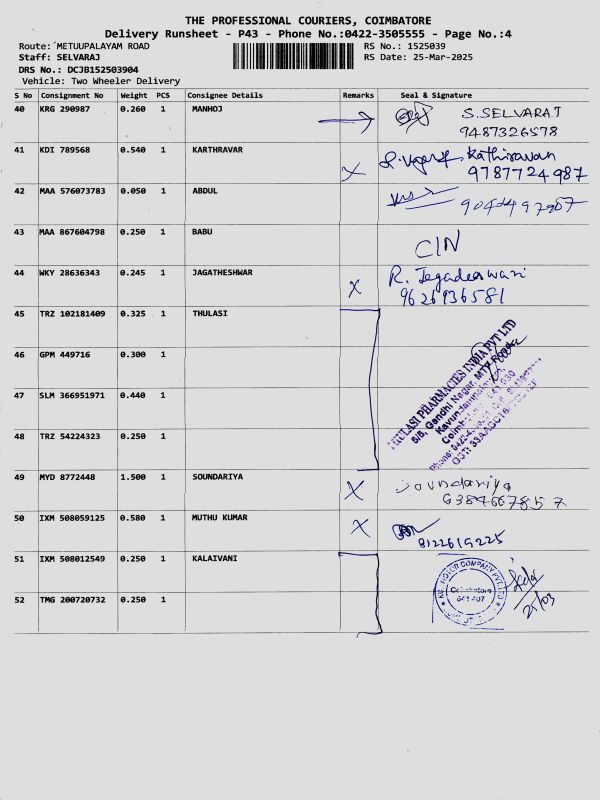 THE PROFESSIONAL COURIERS, COIMBATORE
Delivery Runsheet - P43 - Phone No.:0422-3505555 - Page No.:4
Route: METUUPALAYAM ROAD
RS No.: 1525039
Staff: SELVARAJ
RS Date: 25-Mar-2025
DRS No.: DCJB152503904
Vehicle: Two Wheeler Delivery
S No Consignment No Weight PCS Consignee Details Remarks Seal & Signature
40 KRG 290987 0.260 1 MANHOJ S.SELVARAJ
9487326578
41 KDI 789568 0.540 1 KARTHRAVAR X Kathiravan
9787724987
42 MAA 576073783 0.050 1 ABDUL
43 MAA 867604798 0.250 1 BABU CIN
44 WKY 28636343 0.245 1 JAGATHESHWAR X R. Jegadeeswari
9626936581
45 TRZ 102181409 0.325 1 THULASI
46 GPM 449716 0.300 1
47 SLM 366951971 0.440 1
48 TRZ 54224323 0.250 1
THULASI PHARMACIES INDIA PVT LTD
5/5, Gandhi Nagar, MTP Road
49 MYD 8772448 1.500 1 SOUNDARIYA X Soundariya
6384667857
50 IXM 508059125 0.580 1 MUTHU KUMAR X
8122619225
51 IXM 508012549 0.250 1 KALAIVANI
MOTOR COMPANY PVT LTD
Coimbatore
641 407
52 TMG 200720732 0.250 1
25/03